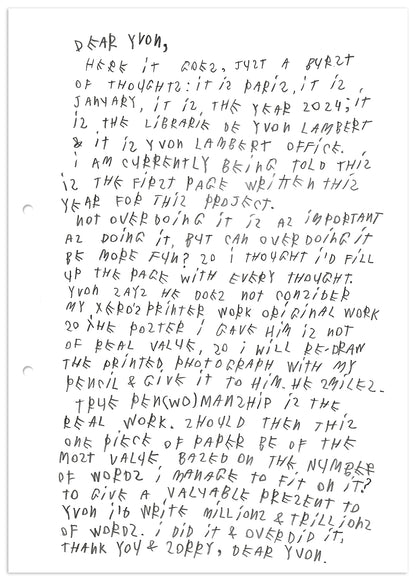 DEAR YVON,
HERE iT GOES, JUST A BURST
OF THOUGHTS: iT iS PARiS, iT iS
JANUARY, iT iS THE YEAR 2024; iT
iS THE LiBRARiE DE YVON LAMBERT
& iT iS YVON LAMBERT OFFiCE.
i AM CURRENTLY BEiNG TOLD THiS
iS THE FiRST PAGE WRiTTEN THiS
YEAR FOR THiS PROJECT.
NOT OVERDOiNG iT iS AS iMPORTANT
AS DOiNG iT, BUT CAN OVERDOiNG iT
BE MORE FUN? SO i THOUGHT i'D FiLL
UP THE PAGE WiTH EVERY THOUGHT.
YVON SAYS HE DOES NOT CONSiDER
MY XEROS PRiNTER WORK ORiGiNAL WORK
SO THE POSTER i GAVE HiM iS NOT
OF REAL VALUE, SO i WiLL RE-DRAW
THE PRiNTED PHOTOGRAPH WiTH MY
PENCiL & GiVE iT TO HiM. HE SMiLES.
TRUE PEN(WO)MANSHiP iS THE
REAL WORK. SHOULD THEN THiS
ONE PiECE OF PAPER BE OF THE
MOST VALUE BASED ON THE NUMBER
OF WORDS i MANAGE TO FiT ON iT?
TO GiVE A VALUABLE PRESENT TO
YVON i'D WRiTE MiLLiONS & TRiLLiONS
OF WORDS. i DiD iT & OVERDiD iT,
THANK YOU & SORRY, DEAR YVON.